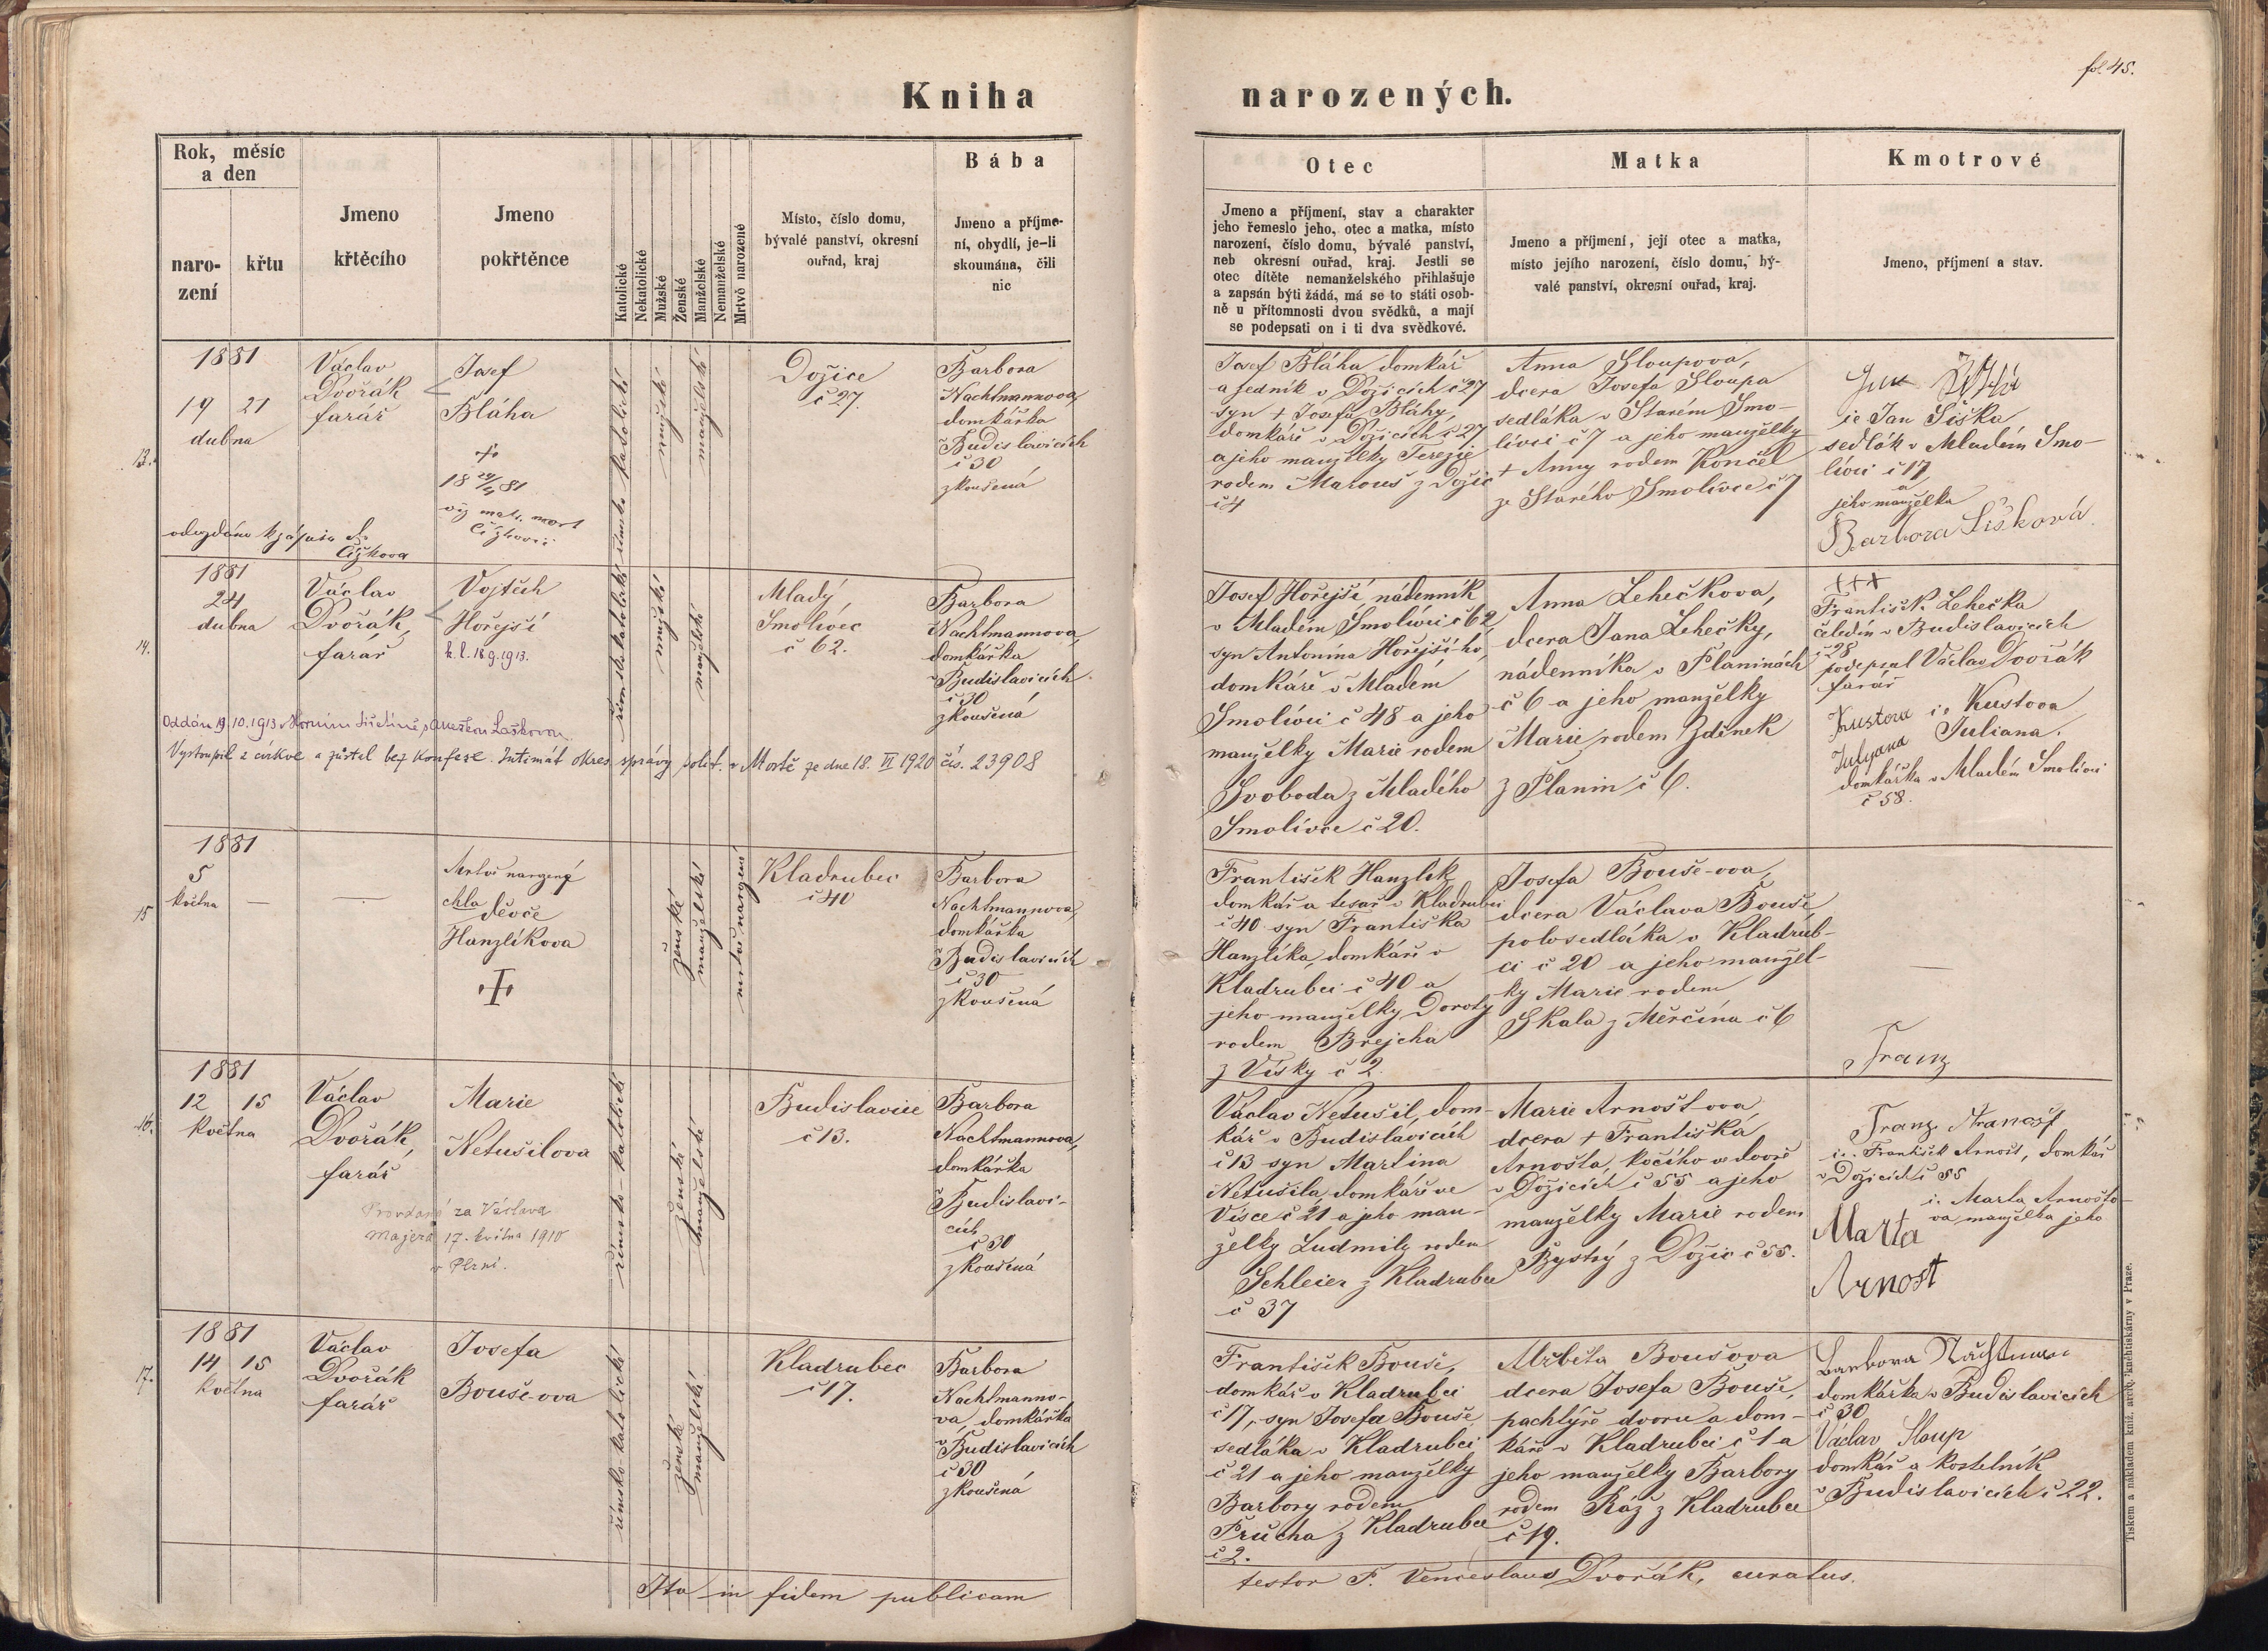 fol. 45.
Kniha narozených.
Rok, měsíc
a den
naro-
zení
křtu
Jmeno
křtěcího
Jmeno
pokřtěnce
Katolické
Nekatolické
Mužské
Ženské
Manželské
Nemanželské
Mrtvě narozené
Místo, číslo domu,
bývalé panství, okresní
ouřad, kraj
Bába
Jmeno a příjme-
ní, obydlí, je-li
skoumána, čili
nic
Otec
Jmeno a příjmení, stav a charakter
jeho řemeslo jeho, otec a matka, místo
narození, číslo domu, bývalé panství,
neb okresní ouřad, kraj. Jestli se
otec dítěte nemanželského přihlašuje
a zapsán býti žádá, má se to státi osob-
ně u přítomnosti dvou svědků, a mají
se podepsati on i ti dva svědkové.
Matka
Jmeno a příjmení, její otec a matka,
místo jejího narození, číslo domu, bý-
valé panství, okresní ouřad, kraj.
Kmotrové
Jmeno, příjmení a stav.
13.
1881
19 21
dubna
Václav
Dvořák
farář
Josef
Bláha
+
18 24/4 81
viz matr. mort
Čížkovii
Čížkova
římsko katolické
mužské
manželské
Dožice
č 27.
Barbora
Nachtmannova,
domkářka
v Budislavicích
č 30
zkoušená
Josef Bláha domkář
a sedník v Dožicích č 27
syn + Josefa Bláhy,
domkáře v Dožicích č 27
a jeho manželky Terezie
rodem Marouš z Dožic
č 4
Anna Sloupova,
dcera Josefa Sloupa
sedláka v Starém Smo-
lívci č 7 a jeho manželky
+ Anny rodem Končel
ze Starého Smolivce č 7
Jan
ie Jan Šiška
sedlák v Mladém Smo-
lívci č 17
a
jeho manželka
Barbora Šišková.
14.
1881
24
dubna
Václav
Dvořák,
farář
Vojtěch
Hořejší
k. l. 18.9.1913.
římsko katolické
mužské
manželské
Mladý
Smolivec
č 62.
Barbora
Nachtmannova,
domkářka
v Budislavicích
č 30
zkoušená
Oddán 19.10.1913 v Horním Laškovou
Vystoupil z církve a zůstal bez konfese. Intimát okres. správy polit. v Mostě ze dne 18. VI 1920 čís. 23908
Josef Hořejší nádenník
v Mladém Smolívci č 62
syn Antonína Hořejší-ho,
domkáře v Mladém
Smolívci č 48 a jeho
manželky Marie rodem
Svoboda z Mladého
Smolívce č 20.
Anna Lehečkova,
dcera Jana Lehečky,
nádenníka v Planinách
č 6 a jeho manželky
Marie rodem Zdínek
z Planin č 6.
+++
František Lehečka
čeledín v Budislavicích
č 28
podepsal Václav Dvořák
farář
Kustova ie Kustova
Julyana Juliana.
domkářka v Mladém Smolivci
č 58.
15
1881
5
května
—
—
Mrtvě narozené
děvče
Hanzlíkova
+
ženské
manželské
mrtvě narozené
Kladrubec
č 40
Barbora
Nachtmannova,
domkářka
v Budislavicích
č 30
zkoušená
František Hanzlík
domkář a tesař v Kladrubci
č 40 syn Františka
Hanzlíka, domkáře v
Kladrubci č 40 a
jeho manželky Doroty
rodem Brejcha
z Vísky č 2
Josefa Bouše-ova,
dcera Václava Bouše,
polosedláka v Kladrub-
ci č 20 a jeho manžel-
ky Marie rodem
Skala z Měrčína č 6
—
Franz
16.
1881
12 15
května
Václav
Dvořák,
farář
Marie
Netušilova
Provdaná za Václava
Majera 17. května 1910
v Plzni.
římsko-katolické
ženské
manželské
Budislavice
č 13.
Barbora
Nachtmannova,
domkářka
v Budislavi-
cích
č 30
zkoušená
Václav Netušil, dom-
kář v Budislavicích
č 13 syn Martina
Netušila, domkáře ve
Vísce č 21 a jeho man-
želky Ludmily rodem
Schleier z Kladrubce
č 37
Marie Arnošt-ova,
dcera + Františka
Arnošta, kočího ve dvoře
v Dožicích č 55 a jeho
manželky Marie rodem
Bystrý z Dožic č 55.
Franz Aranošt
ie. František Arnošt, domkář
v Dožicích č 55
ie. Marta Arnošto-
va, manželka jeho
Marta
Arnost
17.
1881
14 15
května
Václav
Dvořák
farář
Josefa
Bouše-ova
římsko-katolické
ženské
manželské
Kladrubec
č 17.
Barbora
Nachtmanno-
va, domkářka
v Budislavicích
č 30
zkoušená
František Bouše,
domkář v Kladrubci
č 17, syn Josefa Bouše
sedláka v Kladrubci
č 21 a jeho manželky
Barbory rodem
Průcha z Kladrubce
č 2.
Alžběta Boušova
dcera Josefa Bouše,
pachtýře dvoru a dom-
káře v Kladrubci č 1 a
jeho manželky Barbory
rodem Ráž z Kladrubce
č 19.
Barbora Nachtmann
domkářka v Budislavicích
č 30
Václav Sloup
domkář a kostelník
v Budislavicích č 22.
Ita in fidem publicam testor P. Venceslaus Dvořák, curatus.
Tiskem a nákladem kníž. arcib. knihtiskárny v Praze.